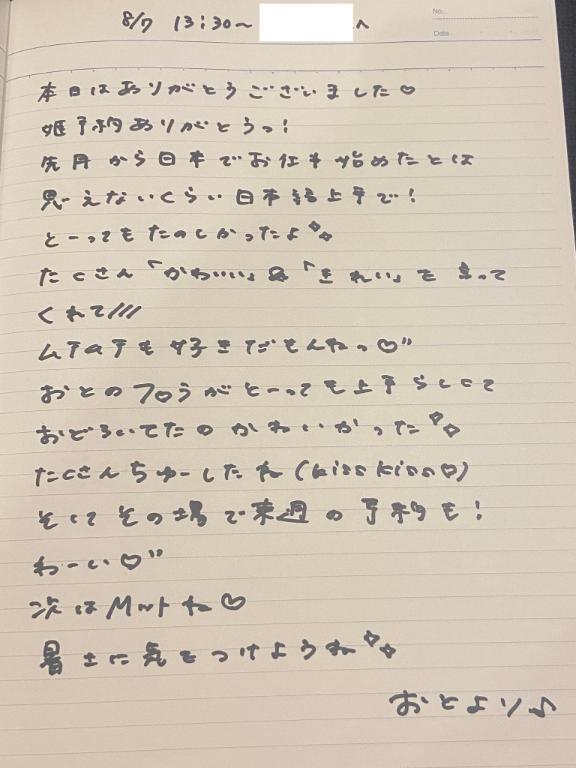 8/7 13:30～ へ
No.
Date
本日はありがとうございました♡
姫予約ありがとうっ!
先月から日本でお仕事始めたとは
思えないくらい日本語上手で!
とーってもたのしかったよ✧✧
たくさん「かわいい」&「きれい」を言って
くれて///
ムチムチも好きだもんねっ♡"
おとのフロうがとーっても上手らしくて
おどろいてたのかわいかった✧✧
たくさんちゅーしたね(kiss kiss♡)
そしてその場で来週の予約も!
わーい♡"
次はMットね♡
暑さに気をつけようね✧✧
おとより♪